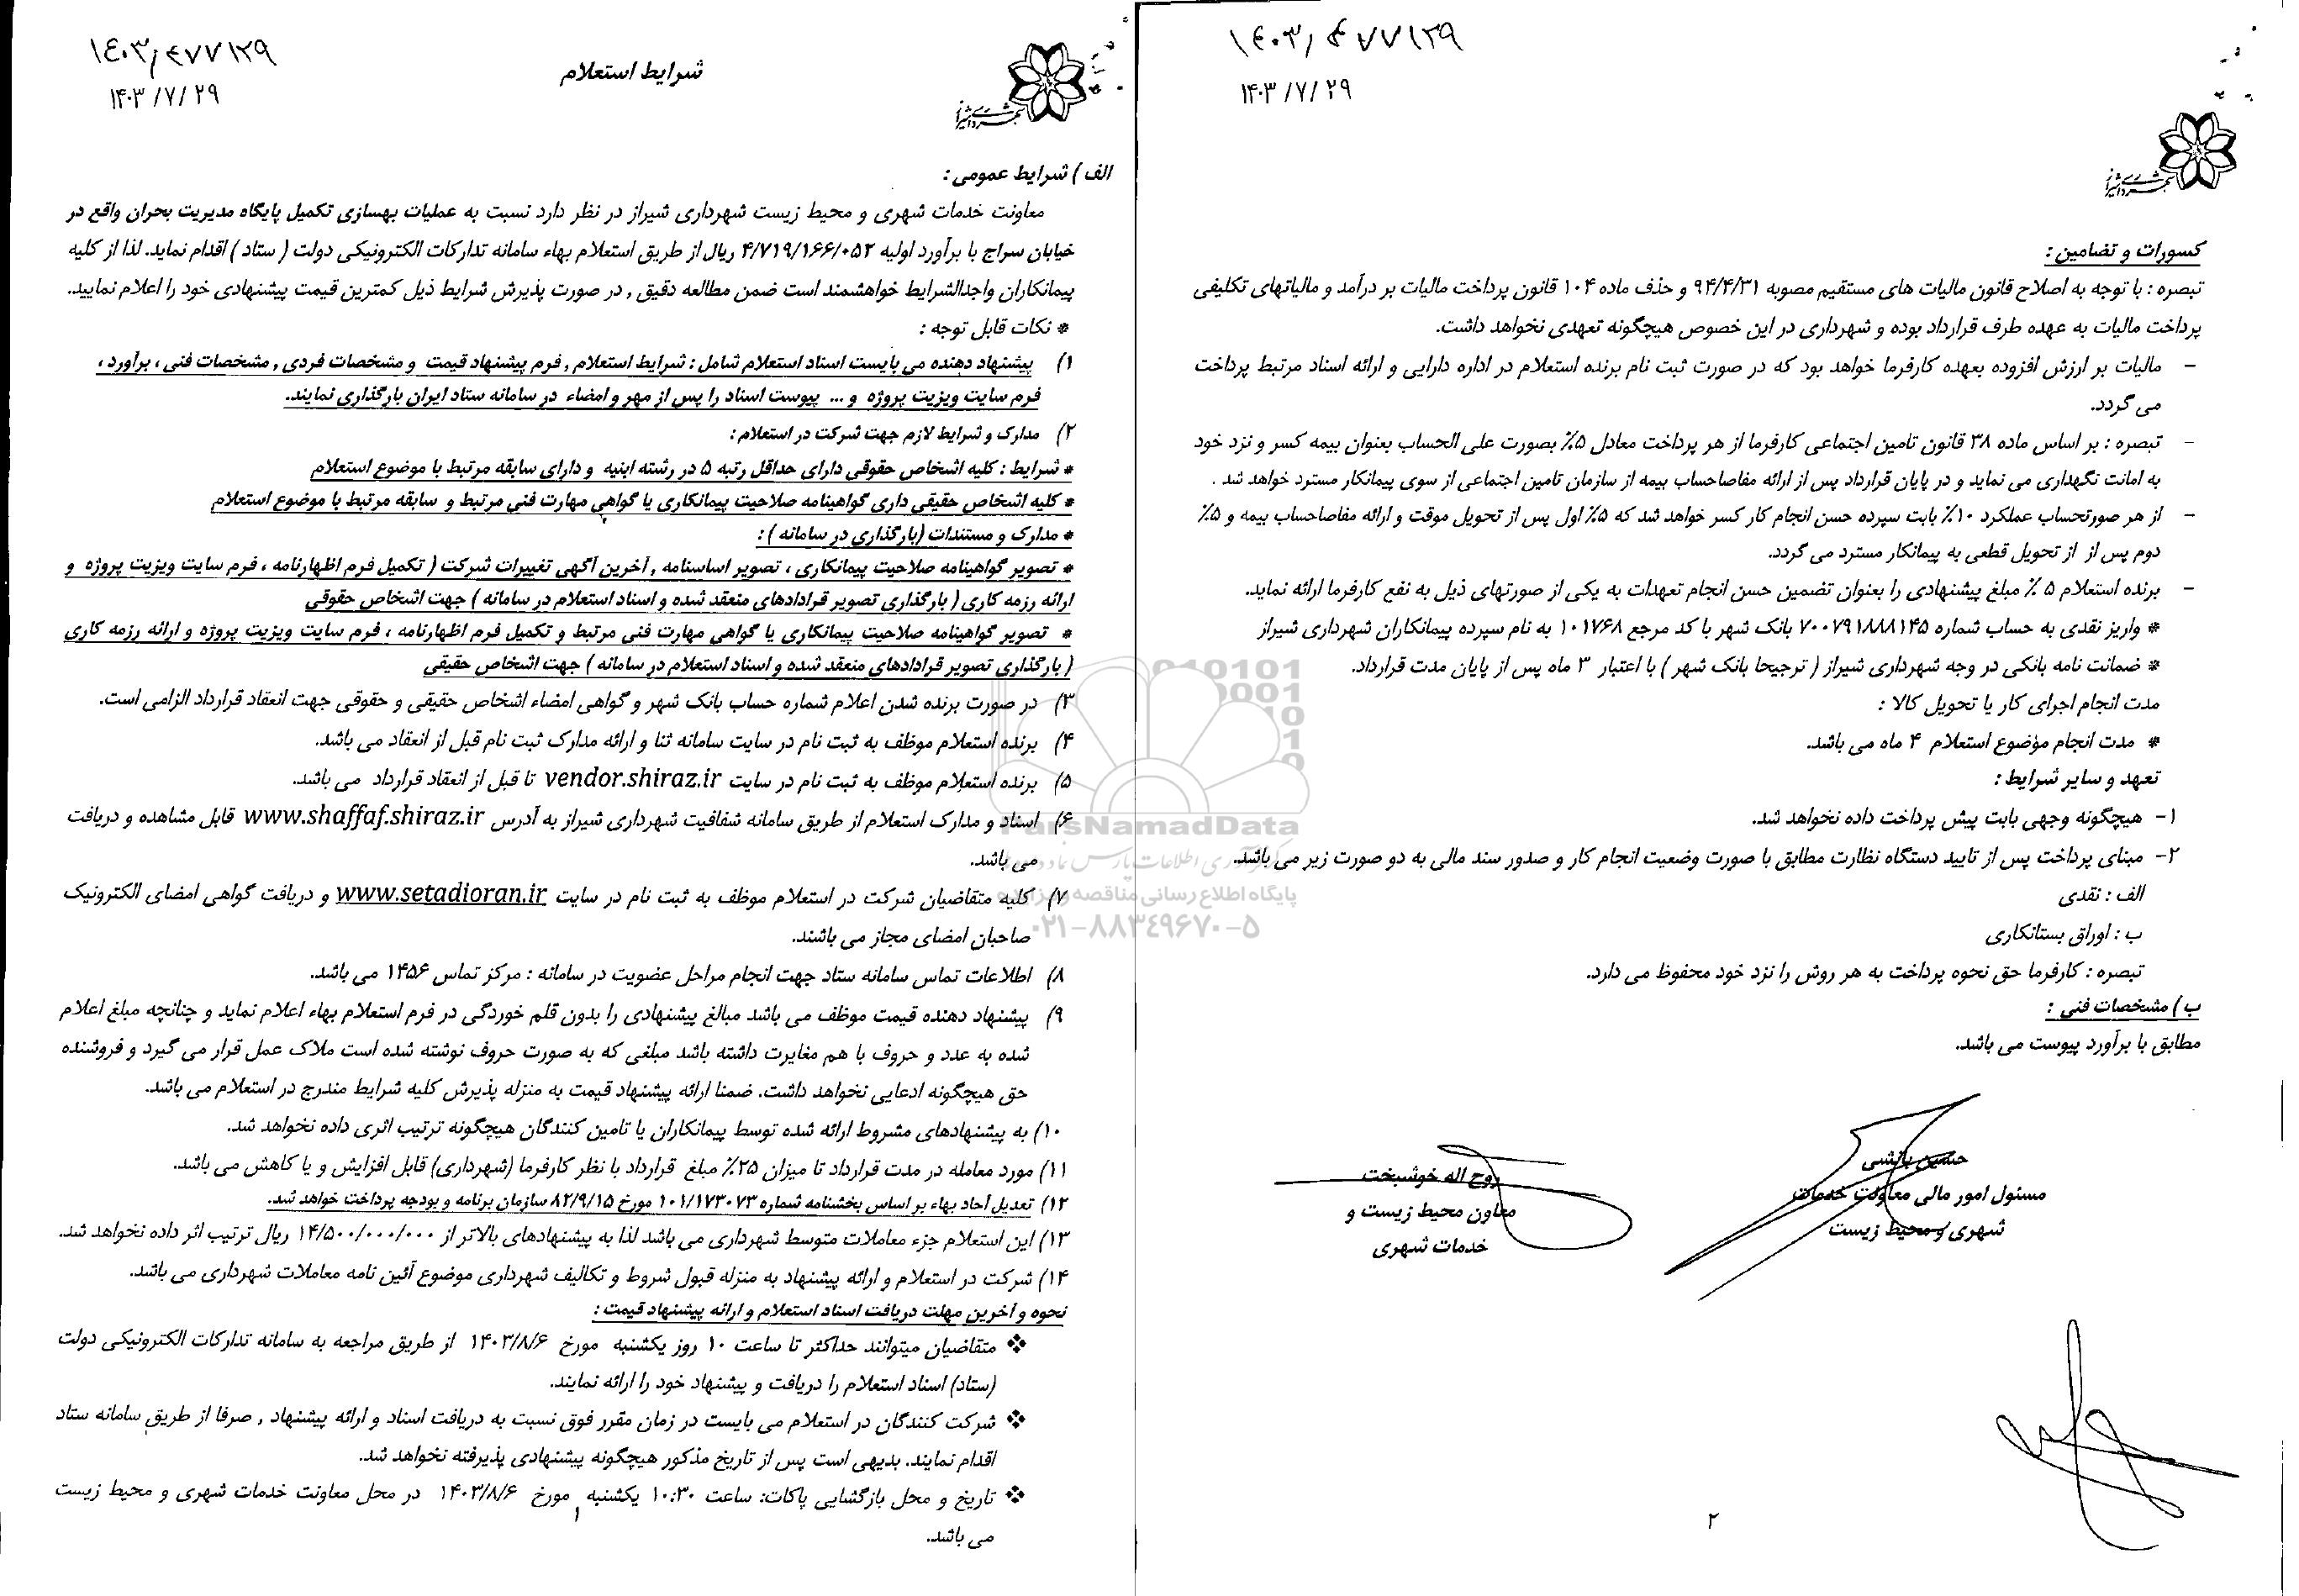 ۱۴۰۳/۴۷۷۱۲۹
۱۴۰۳/۷/۲۹
شرایط استعلام
شهرداری شیراز
الف ) شرایط عمومی :
معاونت خدمات شهری و محیط زیست شهرداری شیراز در نظر دارد نسبت به عملیات بهسازی تکمیل پایگاه مدیریت بحران واقع در
خیابان سراج با برآورد اولیه ۴/۷۱۹/۱۶۶/۰۵۲ ریال از طریق استعلام بهاء سامانه تدارکات الکترونیکی دولت ( ستاد ) اقدام نماید. لذا از کلیه
پیمانکاران واجدالشرایط خواهشمند است ضمن مطالعه دقیق , در صورت پذیرش شرایط ذیل کمترین قیمت پیشنهادی خود را اعلام نمایید.
* نکات قابل توجه :
۱) پیشنهاد دهنده می بایست اسناد استعلام شامل : شرایط استعلام , فرم پیشنهاد قیمت و مشخصات فردی , مشخصات فنی ، برآورد ،
فرم سایت ویزیت پروژه و ... پیوست اسناد را پس از مهر و امضاء در سامانه ستاد ایران بارگذاری نمایند.
۲) مدارک و شرایط لازم جهت شرکت در استعلام :
* شرایط : کلیه اشخاص حقوقی دارای حداقل رتبه ۵ در رشته ابنیه و دارای سابقه مرتبط با موضوع استعلام
* کلیه اشخاص حقیقی داری گواهینامه صلاحیت پیمانکاری یا گواهی مهارت فنی مرتبط و سابقه مرتبط با موضوع استعلام
* مدارک و مستندات (بارگذاری در سامانه ) :
* تصویر گواهینامه صلاحیت پیمانکاری ، تصویر اساسنامه , آخرین آگهی تغییرات شرکت ( تکمیل فرم اظهارنامه ، فرم سایت ویزیت پروژه و
ارائه رزمه کاری ( بارگذاری تصویر قرادادهای منعقد شده و اسناد استعلام در سامانه ) جهت اشخاص حقوقی
* تصویر گواهینامه صلاحیت پیمانکاری یا گواهی مهارت فنی مرتبط و تکمیل فرم اظهارنامه ، فرم سایت ویزیت پروژه و ارائه رزمه کاری
( بارگذاری تصویر قرادادهای منعقد شده و اسناد استعلام در سامانه ) جهت اشخاص حقیقی
۳) در صورت برنده شدن اعلام شماره حساب بانک شهر و گواهی امضاء اشخاص حقیقی و حقوقی جهت انعقاد قرارداد الزامی است.
۴) برنده استعلام موظف به ثبت نام در سایت سامانه ثنا و ارائه مدارک ثبت نام قبل از انعقاد می باشد.
۵) برنده استعلام موظف به ثبت نام در سایت vendor.shiraz.ir تا قبل از انعقاد قرارداد می باشد.
۶) اسناد و مدارک استعلام از طریق سامانه شفافیت شهرداری شیراز به آدرس www.shaffaf.shiraz.ir قابل مشاهده و دریافت
می باشد.
۷) کلیه متقاضیان شرکت در استعلام موظف به ثبت نام در سایت www.setadioran.ir و دریافت گواهی امضای الکترونیک
صاحبان امضای مجاز می باشند.
۸) اطلاعات تماس سامانه ستاد جهت انجام مراحل عضویت در سامانه : مرکز تماس ۱۴۵۶ می باشد.
۹) پیشنهاد دهنده قیمت موظف می باشد مبالغ پیشنهادی را بدون قلم خوردگی در فرم استعلام بهاء اعلام نماید و چنانچه مبلغ اعلام
شده به عدد و حروف با هم مغایرت داشته باشد مبلغی که به صورت حروف نوشته شده است ملاک عمل قرار می گیرد و فروشنده
حق هیچگونه ادعایی نخواهد داشت. ضمنا ارائه پیشنهاد قیمت به منزله پذیرش کلیه شرایط مندرج در استعلام می باشد.
۱۰) به پیشنهادهای مشروط ارائه شده توسط پیمانکاران یا تامین کنندگان هیچگونه ترتیب اثری داده نخواهد شد.
۱۱) مورد معامله در مدت قرارداد تا میزان ۲۵٪ مبلغ قرارداد با نظر کارفرما (شهرداری) قابل افزایش و یا کاهش می باشد.
۱۲) تعدیل آحاد بهاء بر اساس بخشنامه شماره ۱۰۱/۱۷۳۰۷۳ مورخ ۸۲/۹/۱۵ سازمان برنامه و بودجه پرداخت خواهد شد.
۱۳) این استعلام جزء معاملات متوسط شهرداری می باشد لذا به پیشنهادهای بالاتر از ۱۴/۵۰۰/۰۰۰/۰۰۰ ریال ترتیب اثر داده نخواهد شد.
۱۴) شرکت در استعلام و ارائه پیشنهاد به منزله قبول شروط و تکالیف شهرداری موضوع آئین نامه معاملات شهرداری می باشد.
نحوه و آخرین مهلت دریافت اسناد استعلام و ارائه پیشنهاد قیمت :
❖ متقاضیان میتوانند حداکثر تا ساعت ۱۰ روز یکشنبه مورخ ۱۴۰۳/۸/۶ از طریق مراجعه به سامانه تدارکات الکترونیکی دولت
(ستاد) اسناد استعلام را دریافت و پیشنهاد خود را ارائه نمایند.
❖ شرکت کنندگان در استعلام می بایست در زمان مقرر فوق نسبت به دریافت اسناد و ارائه پیشنهاد , صرفا از طریق سامانه ستاد
اقدام نمایند. بدیهی است پس از تاریخ مذکور هیچگونه پیشنهادی پذیرفته نخواهد شد.
❖ تاریخ و محل بازگشایی پاکات: ساعت ۱۰:۳۰ یکشنبه مورخ ۱۴۰۳/۸/۶ در محل معاونت خدمات شهری و محیط زیست
می باشد.
۱
۱۴۰۳/۴۷۷۱۲۹
۱۴۰۳/۷/۲۹
شهرداری شیراز
کسورات و تضامین :
تبصره : با توجه به اصلاح قانون مالیات های مستقیم مصوبه ۹۴/۴/۳۱ و حذف ماده ۱۰۴ قانون پرداخت مالیات بر درآمد و مالیاتهای تکلیفی
پرداخت مالیات به عهده طرف قرارداد بوده و شهرداری در این خصوص هیچگونه تعهدی نخواهد داشت.
- مالیات بر ارزش افزوده بعهده کارفرما خواهد بود که در صورت ثبت نام برنده استعلام در اداره دارایی و ارائه اسناد مرتبط پرداخت
می گردد.
- تبصره : بر اساس ماده ۳۸ قانون تامین اجتماعی کارفرما از هر پرداخت معادل ۵٪ بصورت علی الحساب بعنوان بیمه کسر و نزد خود
به امانت نگهداری می نماید و در پایان قرارداد پس از ارائه مفاصاحساب بیمه از سازمان تامین اجتماعی از سوی پیمانکار مسترد خواهد شد .
- از هر صورتحساب عملکرد ۱۰٪ بابت سپرده حسن انجام کار کسر خواهد شد که ۵٪ اول پس از تحویل موقت و ارائه مفاصاحساب بیمه و ۵٪
دوم پس از از تحویل قطعی به پیمانکار مسترد می گردد.
- برنده استعلام ۵ ٪ مبلغ پیشنهادی را بعنوان تضمین حسن انجام تعهدات به یکی از صورتهای ذیل به نفع کارفرما ارائه نماید.
* واریز نقدی به حساب شماره ۷۰۰۷۹۱۸۸۸۱۴۵ بانک شهر با کد مرجع ۱۰۱۷۶۸ به نام سپرده پیمانکاران شهرداری شیراز
* ضمانت نامه بانکی در وجه شهرداری شیراز ( ترجیحا بانک شهر ) با اعتبار ۳ ماه پس از پایان مدت قرارداد.
مدت انجام اجرای کار یا تحویل کالا :
* مدت انجام موضوع استعلام ۴ ماه می باشد.
تعهد و سایر شرایط :
۱- هیچگونه وجهی بابت پیش پرداخت داده نخواهد شد.
۲- مبنای پرداخت پس از تایید دستگاه نظارت مطابق با صورت وضعیت انجام کار و صدور سند مالی به دو صورت زیر می باشد.
الف : نقدی
ب : اوراق بستانکاری
تبصره : کارفرما حق نحوه پرداخت به هر روش را نزد خود محفوظ می دارد.
ب ) مشخصات فنی :
مطابق با برآورد پیوست می باشد.
حسین بانشی
مسئول امور مالی معاونت خدمات
شهری و محیط زیست
روح اله خوشبخت
معاون محیط زیست و
خدمات شهری
۲
ParsNamadData
پایگاه اطلاع رسانی مناقصه و مزایده
۰۲۱-۸۸۳۴۹۶۷۰-۵